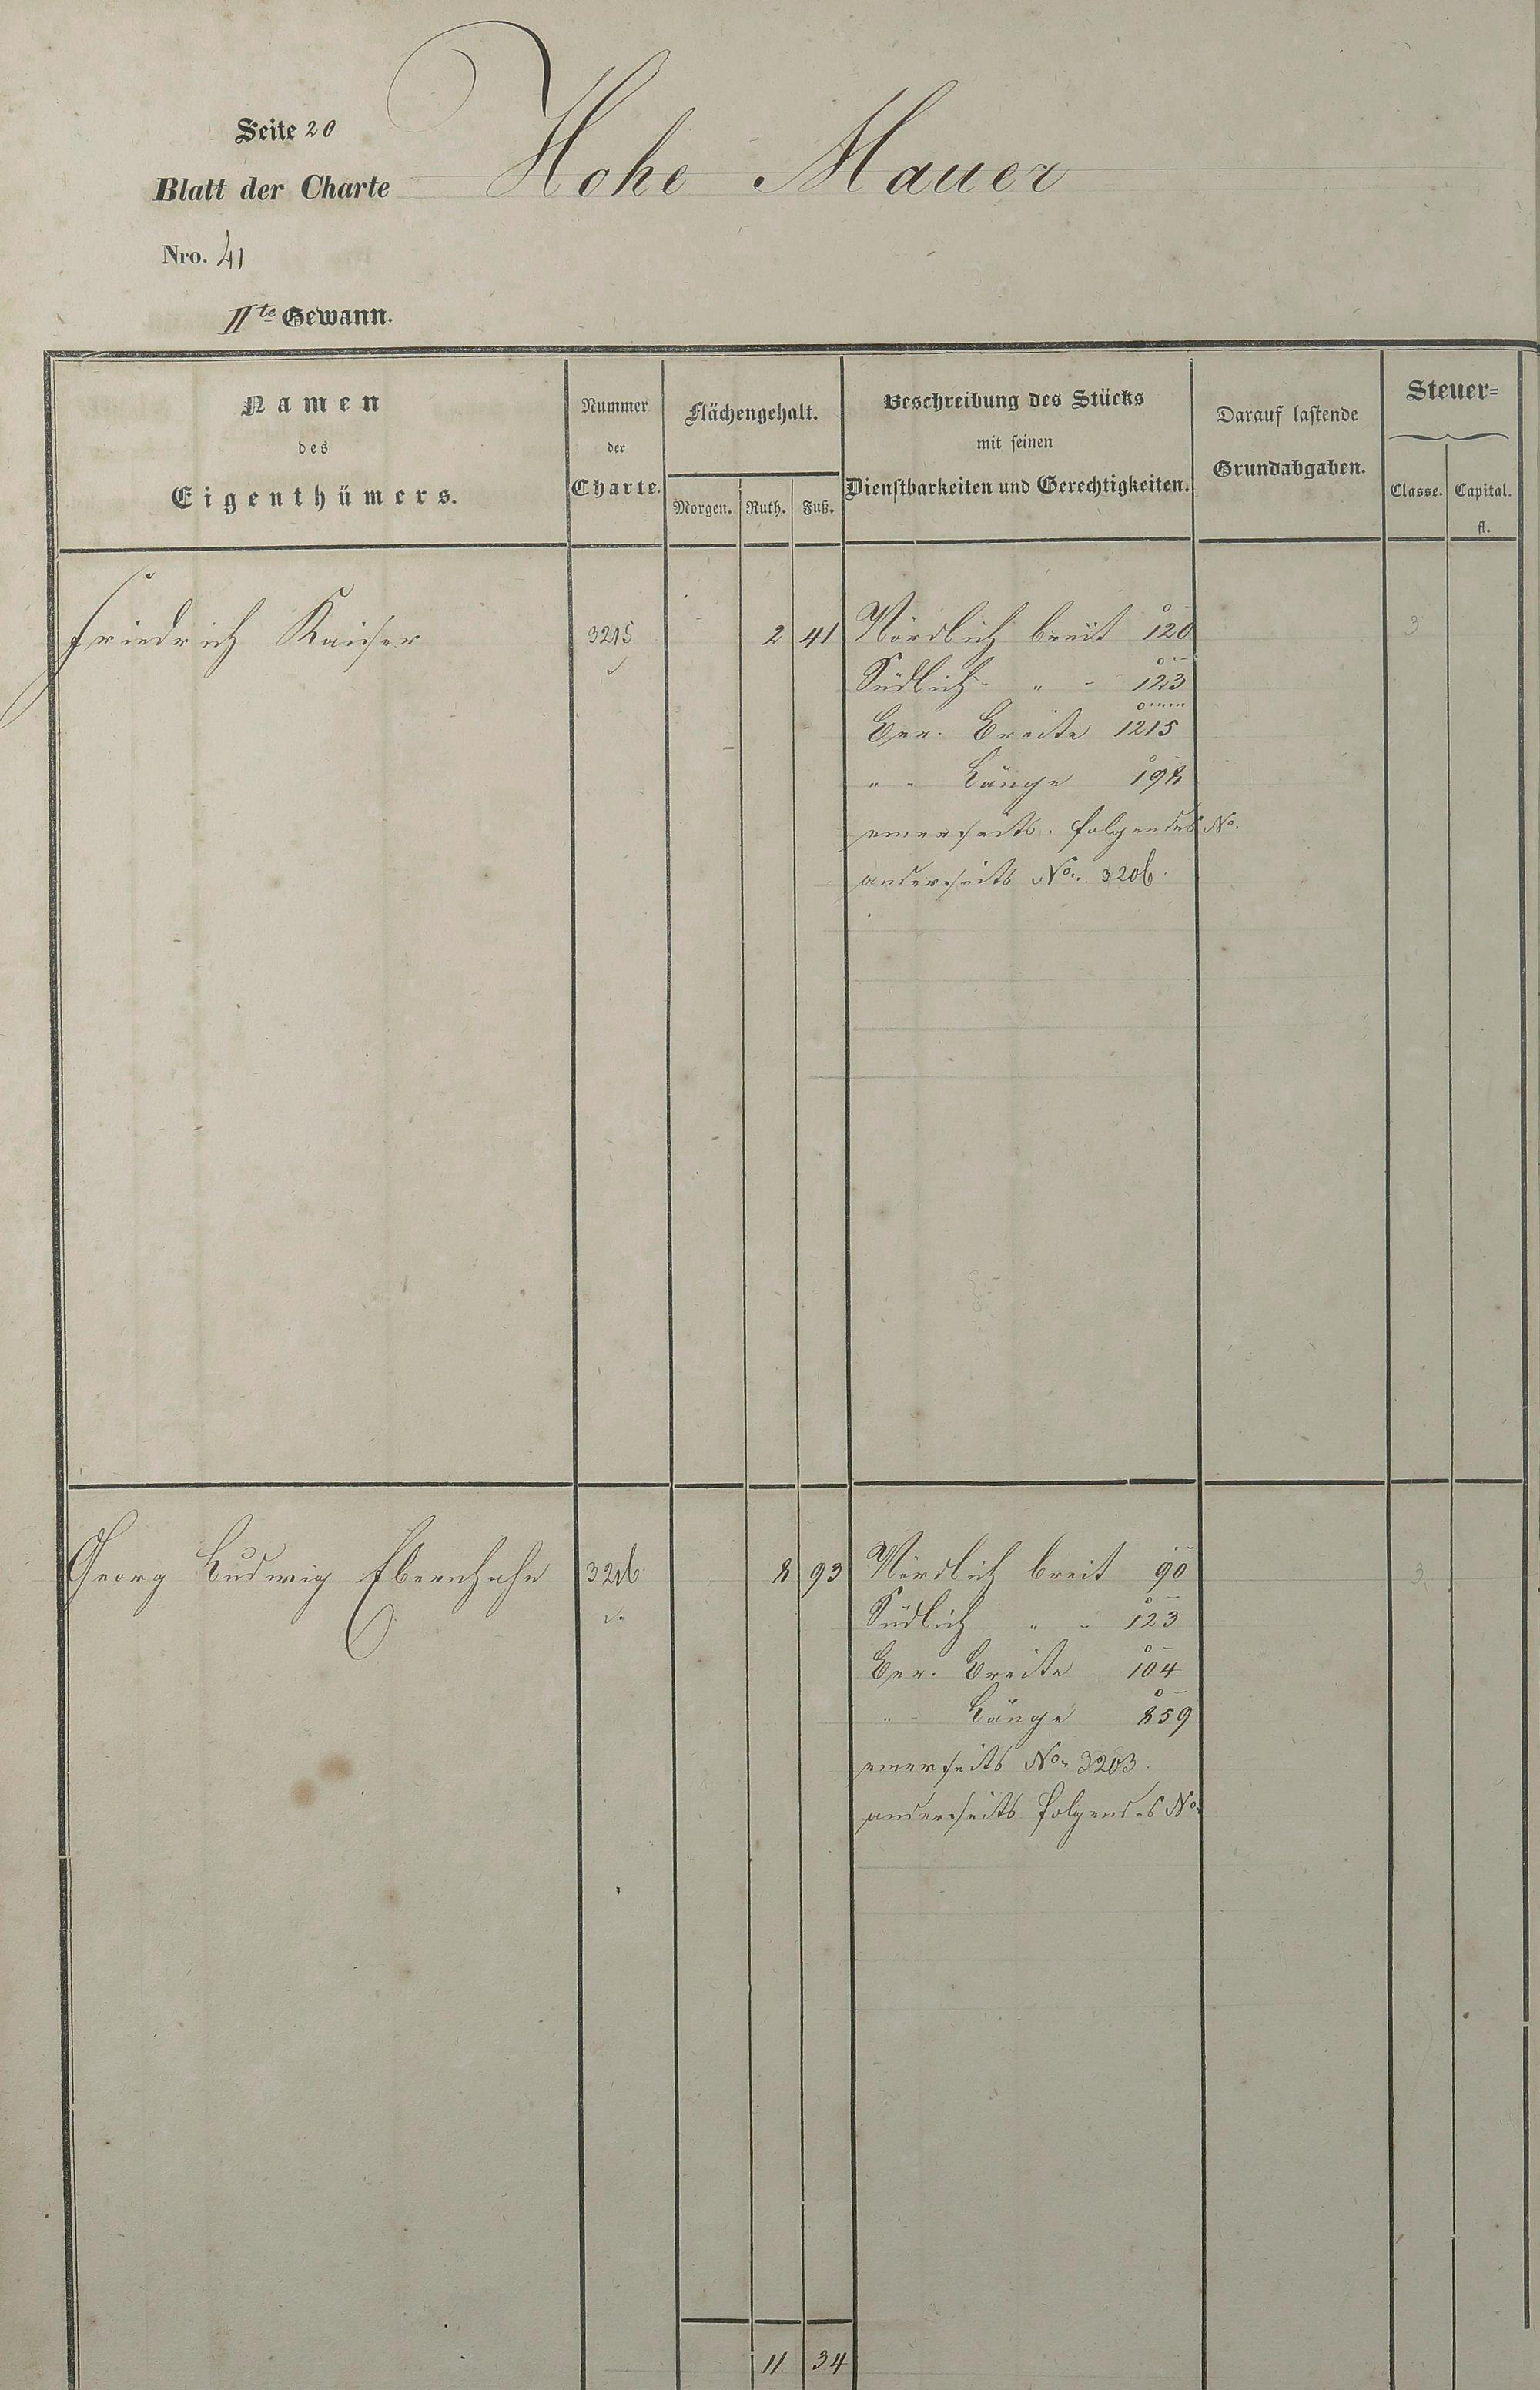 Seite 20
Blatt der Charte Hohe Mauer
Nro. 41
IIte Gewann.
Namen
des
Eigenthümers.
Nummer
der
Charte.
Flächengehalt.
Morgen. Ruth. Fuß.
Beschreibung des Stücks
mit seinen
Dienstbarkeiten und Gerechtigkeiten.
Darauf lastende
Grundabgaben.
Steuer=
Classe. Capital.
fl.
Friedrich Kaiser 3215 2 41 Nördlich breit 120 3
Südlich " " 123
Ger. Breite 1215
" " Länge 198
einerseits folgendes No.
anderseits No. 3206.
Georg Ludwig Ebernhahn 3216 8 93 Nördlich breit 90 3
Südlich " " 123
Ger. Breite 104
" Länge 859
einerseits No. 3203.
anderseits folgendes No.
11 34